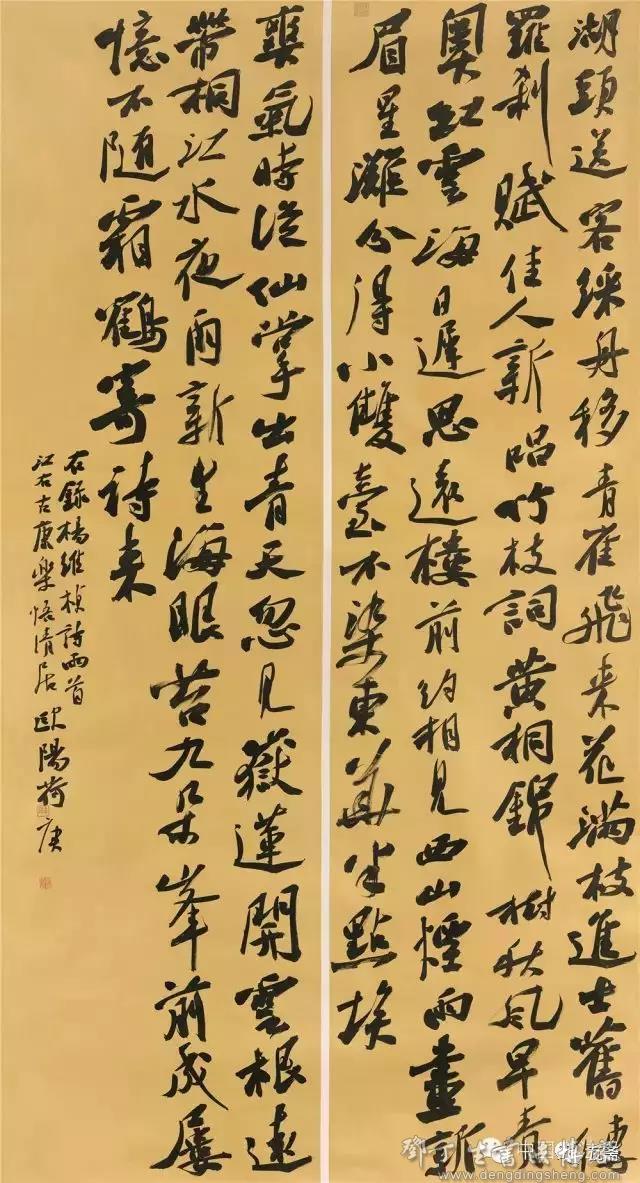 湖頭送客綵舟移青雀飛來花滿枝進士舊傳
羅刹賦佳人新唱竹枝詞黄桐錦樹秋風早貢
奥紅雲海日遲思遠樓前約相見西山煙雨畫新
眉星灘分得小雙臺不染東華半點埃
爽氣時從仙掌出青天忽見嶽蓮開雲根遠
帶桐江水夜雨新生海眼苔九朵峯前成屢
憶不隨霜鶴寄詩来
右錄楊維楨詩兩首
江右古康樂悟清居歐陽荷庚
www.dengdingsheng.com